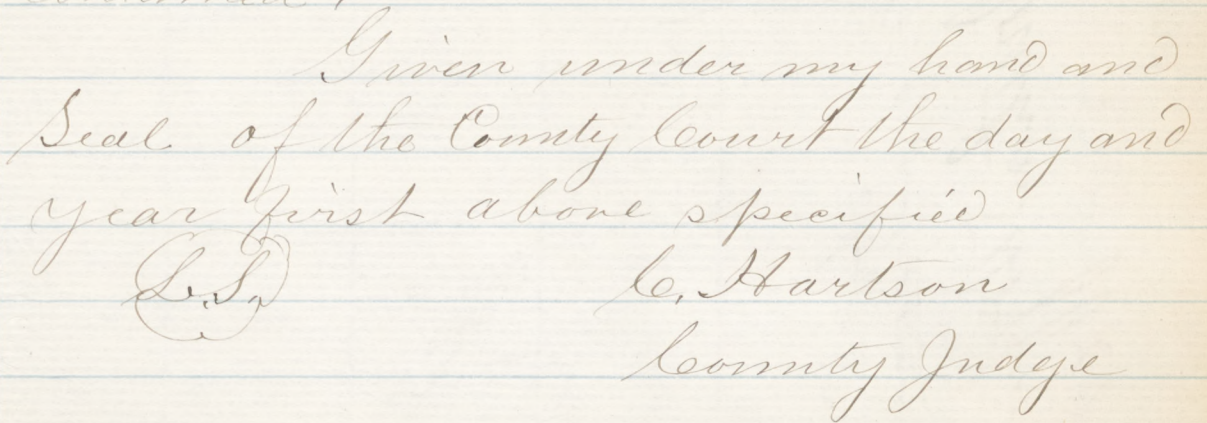 Given under my hand and
Seal of the County Court the day and
year first above specified
L.S. C. Hartson
County Judge